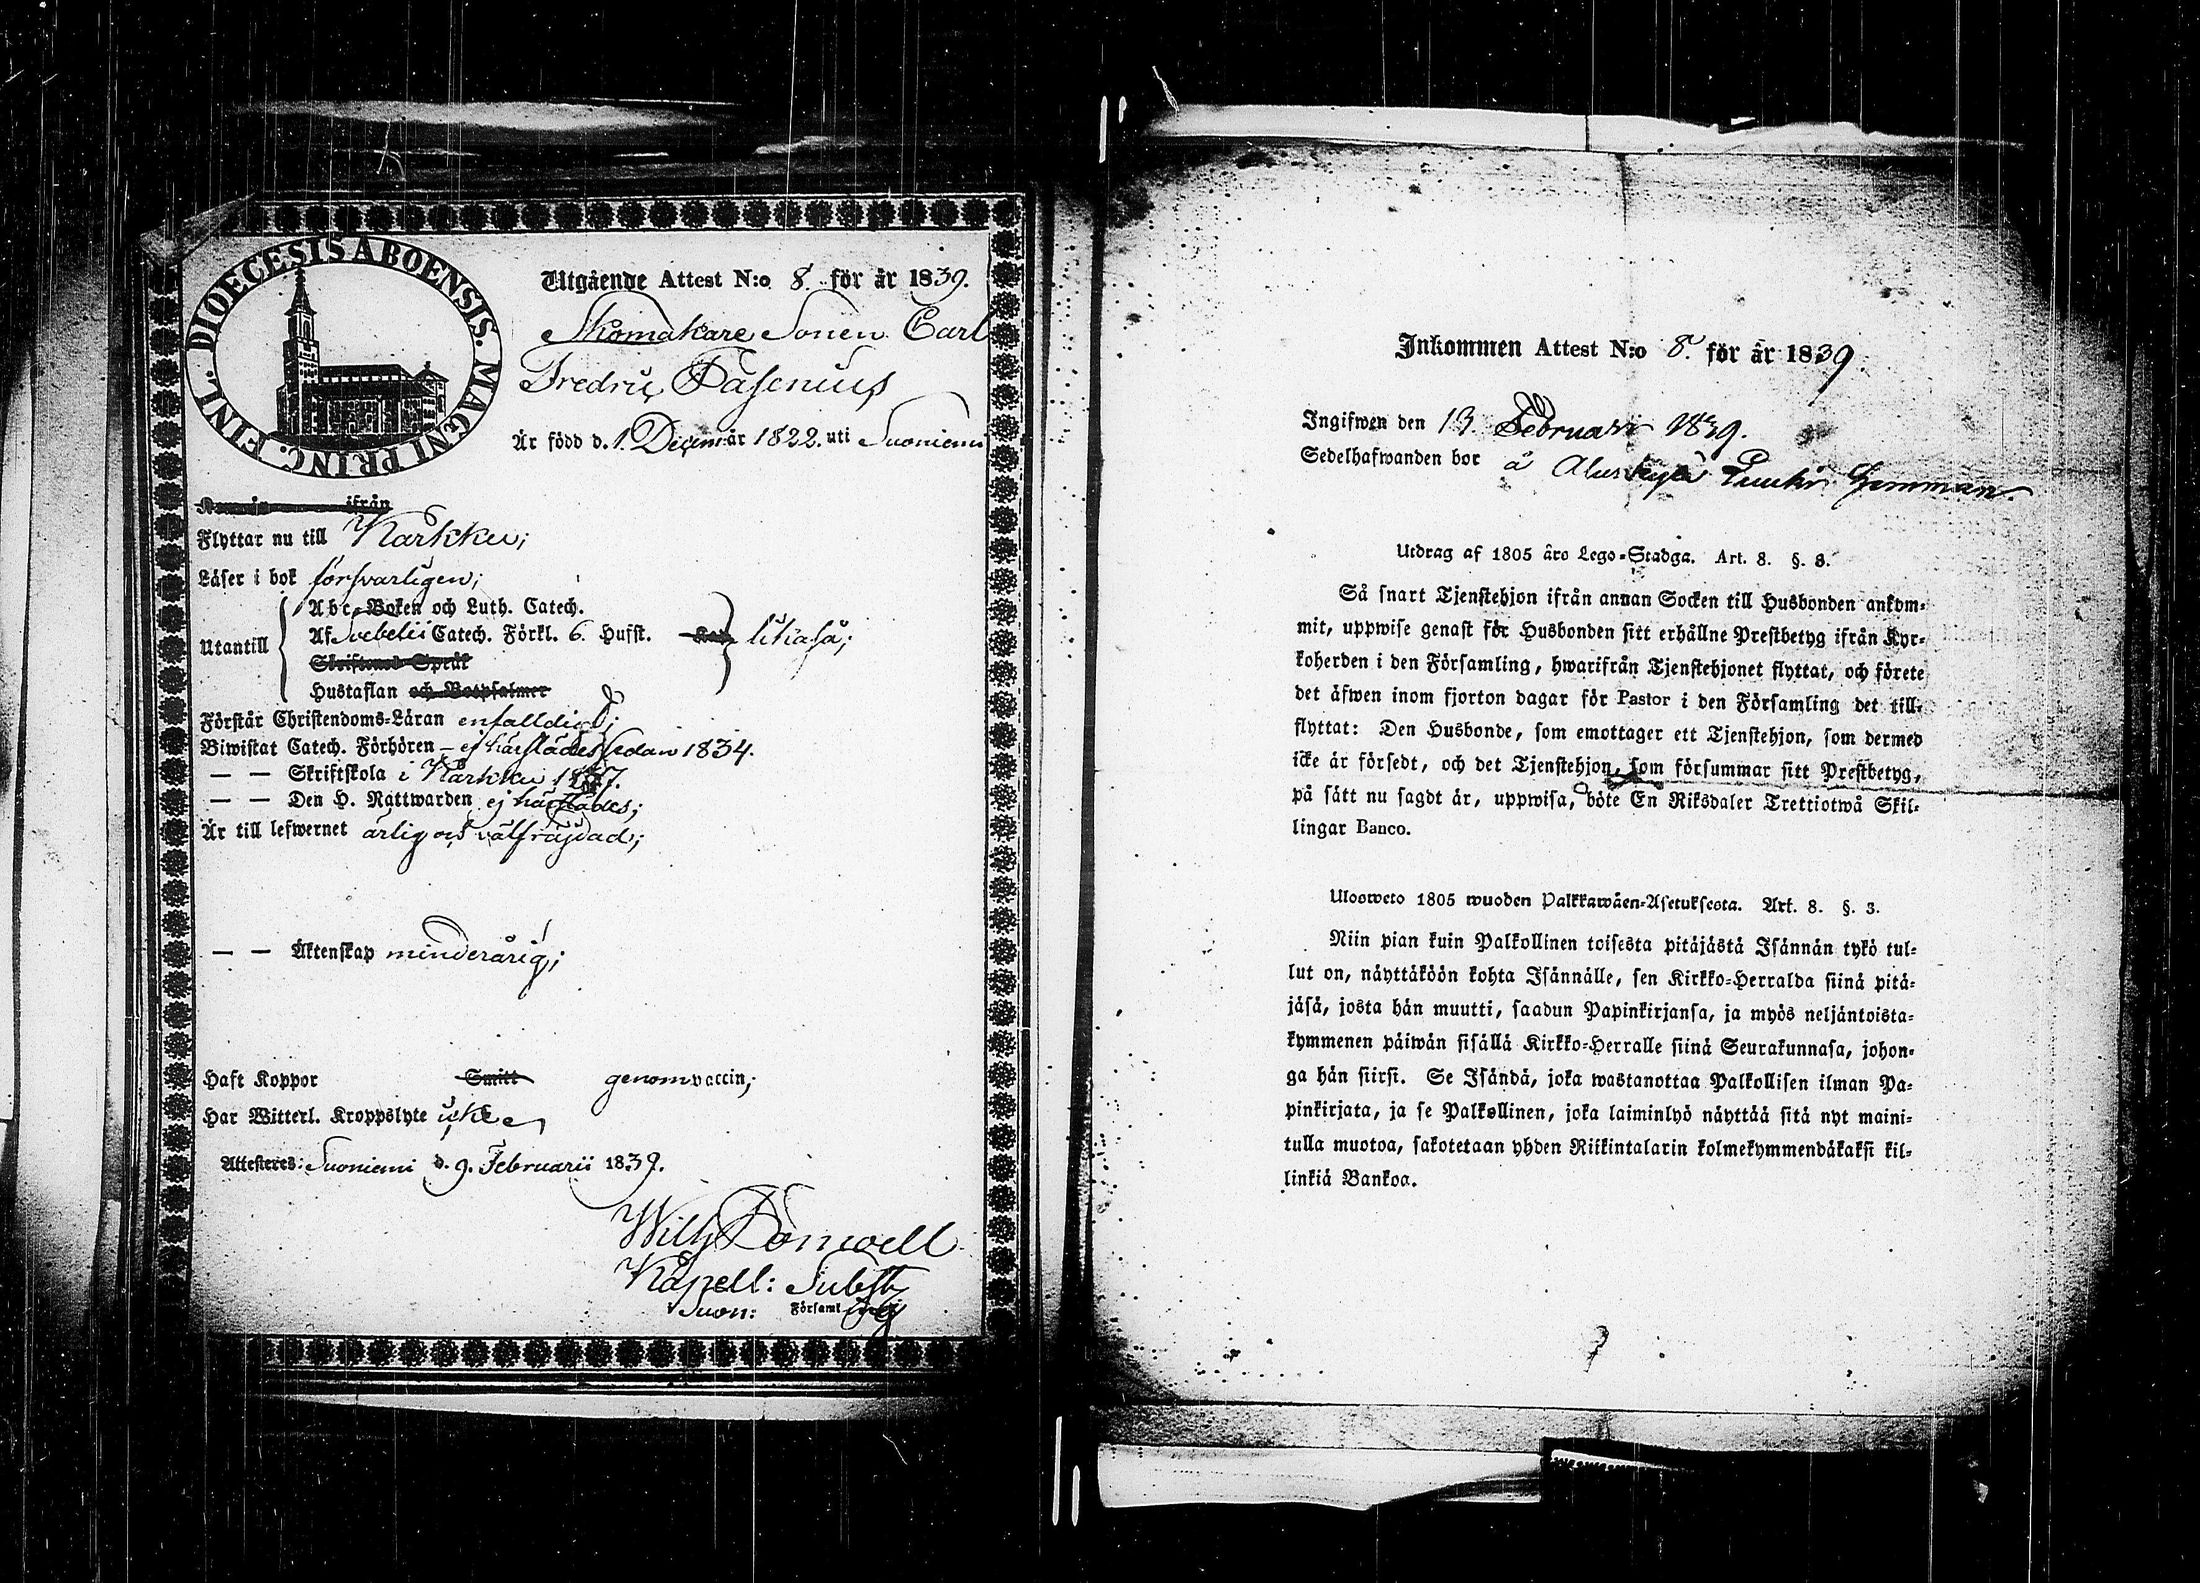 DIOECESIS ABOENSIS. MAGNI PRINC. FINL.
Utgående Attest N:o 8. för år 1839.
Skomakare Sonen Carl
Fredric Fasenius
Är född d. 1. Decem år 1822. uti Suoniemi
ifrån
Flyttar nu till Karkku;
Läser i bok försvarligen;
Utantill
Abc-Boken och Luth. Catech.
Af Svebelii Catech. Förkl. 6. Hufst. likaså;
Skriftenes Språk
Hustaflan och Botpsalmer
Förstår Christendoms-Läran enfalldigt;
Biwistat Catech. Förhören – ej härstädes sedan 1834.
— — Skriftskola i Karkku 1837.
— — Den H. Nattwarden ej härstädes;
Är till lefwernet ärlig och välfräjdad;
— — Äktenskap minderårig;
Haft Koppor Smitt genom vaccin;
Har Witterl. Kroppslyte icke
Attesteres: Suoniemi d. 9. Februarii 1839.
Wilh
Kapell: Subst:
i Suon: Församl
Inkommen Attest N:o 8. för år 1839.
Ingifwen den 13. Februari 1839.
Sedelhafwanden bor å Aluskylä hemman.
Utdrag af 1805 års Lego-Stadga. Art. 8. §. 3.
Så snart Tjenstehjon ifrån annan Socken till Husbonden ankom-
mit, uppwise genast för Husbonden sitt erhållne Prestbetyg ifrån Kyr-
koherden i den Församling, hwarifrån Tjenstehjonet flyttat, och förete
det äfwen inom fjorton dagar för Pastor i den Församling det till-
flyttat: Den Husbonde, som emottager ett Tjenstehjon, som dermed
icke är försedt, och det Tjenstehjon, som försummar sitt Prestbetyg,
på sätt nu sagdt är, uppwisa, böte En Riksdaler Trettiotwå Skil-
lingar Banco.
Ulosweto 1805 wuoden Palkkawäen-Asetuksesta. Art. 8. §. 3.
Niin pian kuin Palkollinen toisesta pitäjästä Isännän tykö tul-
lut on, näyttäköön kohta Isännälle, sen Kirkko-Herralda siinä pitä-
jäsä, josta hän muutti, saadun Papinkirjansa, ja myös neljäntoista-
kymmenen päiwän sisällä Kirkko-Herralle siinä Seurakunnasa, johon-
ga hän siirsi. Se Isändä, joka wastanottaa Palkollisen ilman Pa-
pinkirjata, ja se Palkollinen, joka laiminlyö näyttää sitä nyt maini-
tulla muotoa, sakotetaan yhden Riikintalarin kolmekymmendäkaksi kil-
linkiä Bankoa.